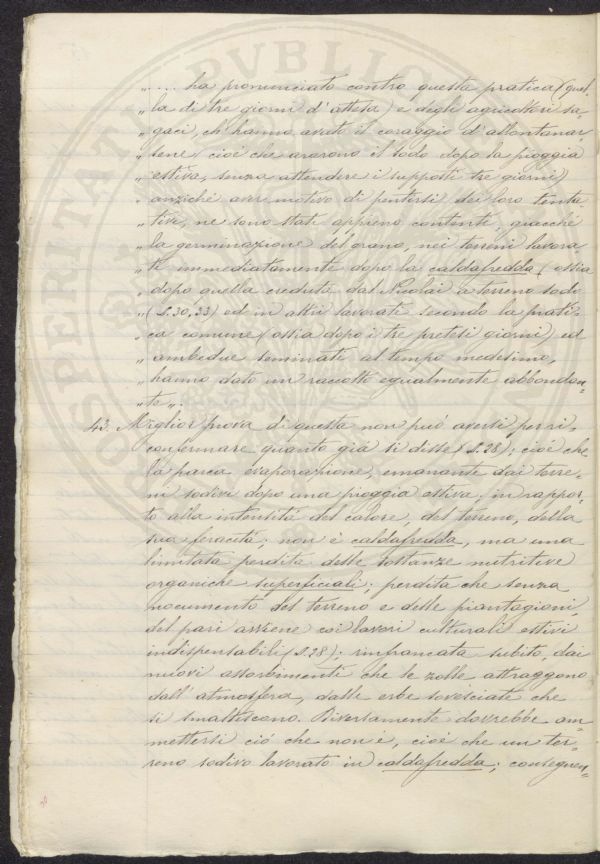 „ .... ha pronunciato contro questa pratica (quel-
„ la di tre giorni d'attesa) e degli agricoltori sa-
„ gaci, ch'hanno avuto il coraggio d'allontanar
„ sene (cioè che ararono il sodo dopo la pioggia
„ estiva, senza attendere i supposti tre giorni)
„ anziché aver motivo di pentirsi dei loro tenta
„ tivi, ne sono stati appieno contenti, giacché
„ la germinazione del grano, nei terreni lavora
„ ti immediatamente dopo la caldafredda (ossia
„ dopo quella creduta dal Nicolai a terreno sodi-
„ (§.30.33) ed in altri lavorati secondo la prati-
„ ca comune (ossia dopo i tre pretesi giorni) ed
„ ambedue seminati al tempo medesimo,
„ hanno dato un raccolto egualmente abbondan-
„ te „.
43. Miglior prova di questa non può aversi per ri-
confermare quanto già si disse (§.28); cioè che
la parca evaporazione, emanante dai terre-
ni sodivi dopo una pioggia estiva; in rappor-
to alla intensità del calore, del terreno, della
sua feracità; non è caldafredda, ma una
limitata perdita delle sostanze nutritive
organiche superficiali; perdita che senza
nocumento del terreno e delle piantagioni,
del pari avviene coi lavori culturali estivi
indispensabili (§.28); rinfrancata subito, dai
nuovi assorbimenti che le zolle attraggono
dall'atmosfera, dalle erbe sovesciate che
si smaltiscono. Diversamente dovrebbe am-
mettersi ciò che non è, cioè che un ter-
reno sodivo lavorato in caldafredda; conseguen-
PROSPERITATI PVBLICAE